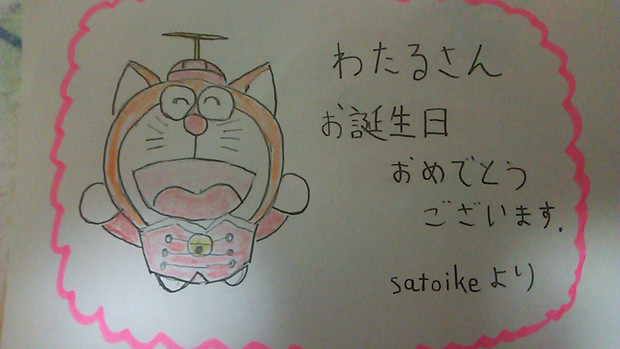 わたるさん
お誕生日
おめでとう
ございます.
satoikeより